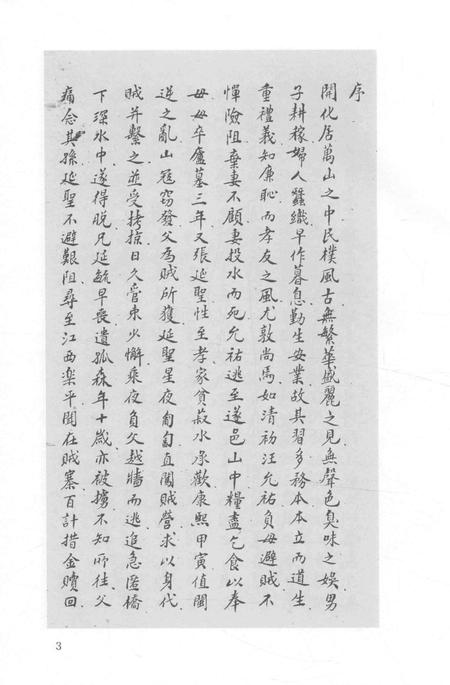 序
開化居萬山之中民樸風古無繁華盛麗之見無聲色臭味之娛男
子耕稼婦人蠶織早作暮息勤生安業故其習多務本本立而道生
重禮義知廉恥而孝友之風尤敦尚焉如清初汪允祐負母避賊不
憚險阻棄妻不顧妻投水而死允祐逃至遂邑山中糧盡乞食以奉
母母卒廬墓三年又張延聖性至孝家貧菽水承歡康熙甲寅值閩
逆之亂山寇窃發父為賊所獲延聖星夜匍匐直闖賊營求以身代
賊并繫之並受拷掠日久管束少懈乘夜負父越牆而逃追急匿橋
下深水中遂得脱兄延毓早喪遺孤森年十歲亦被擄不知所往父
痛念其孫延聖不避艱阻尋至江西楽平聞在賊寨百計措金贖回
3